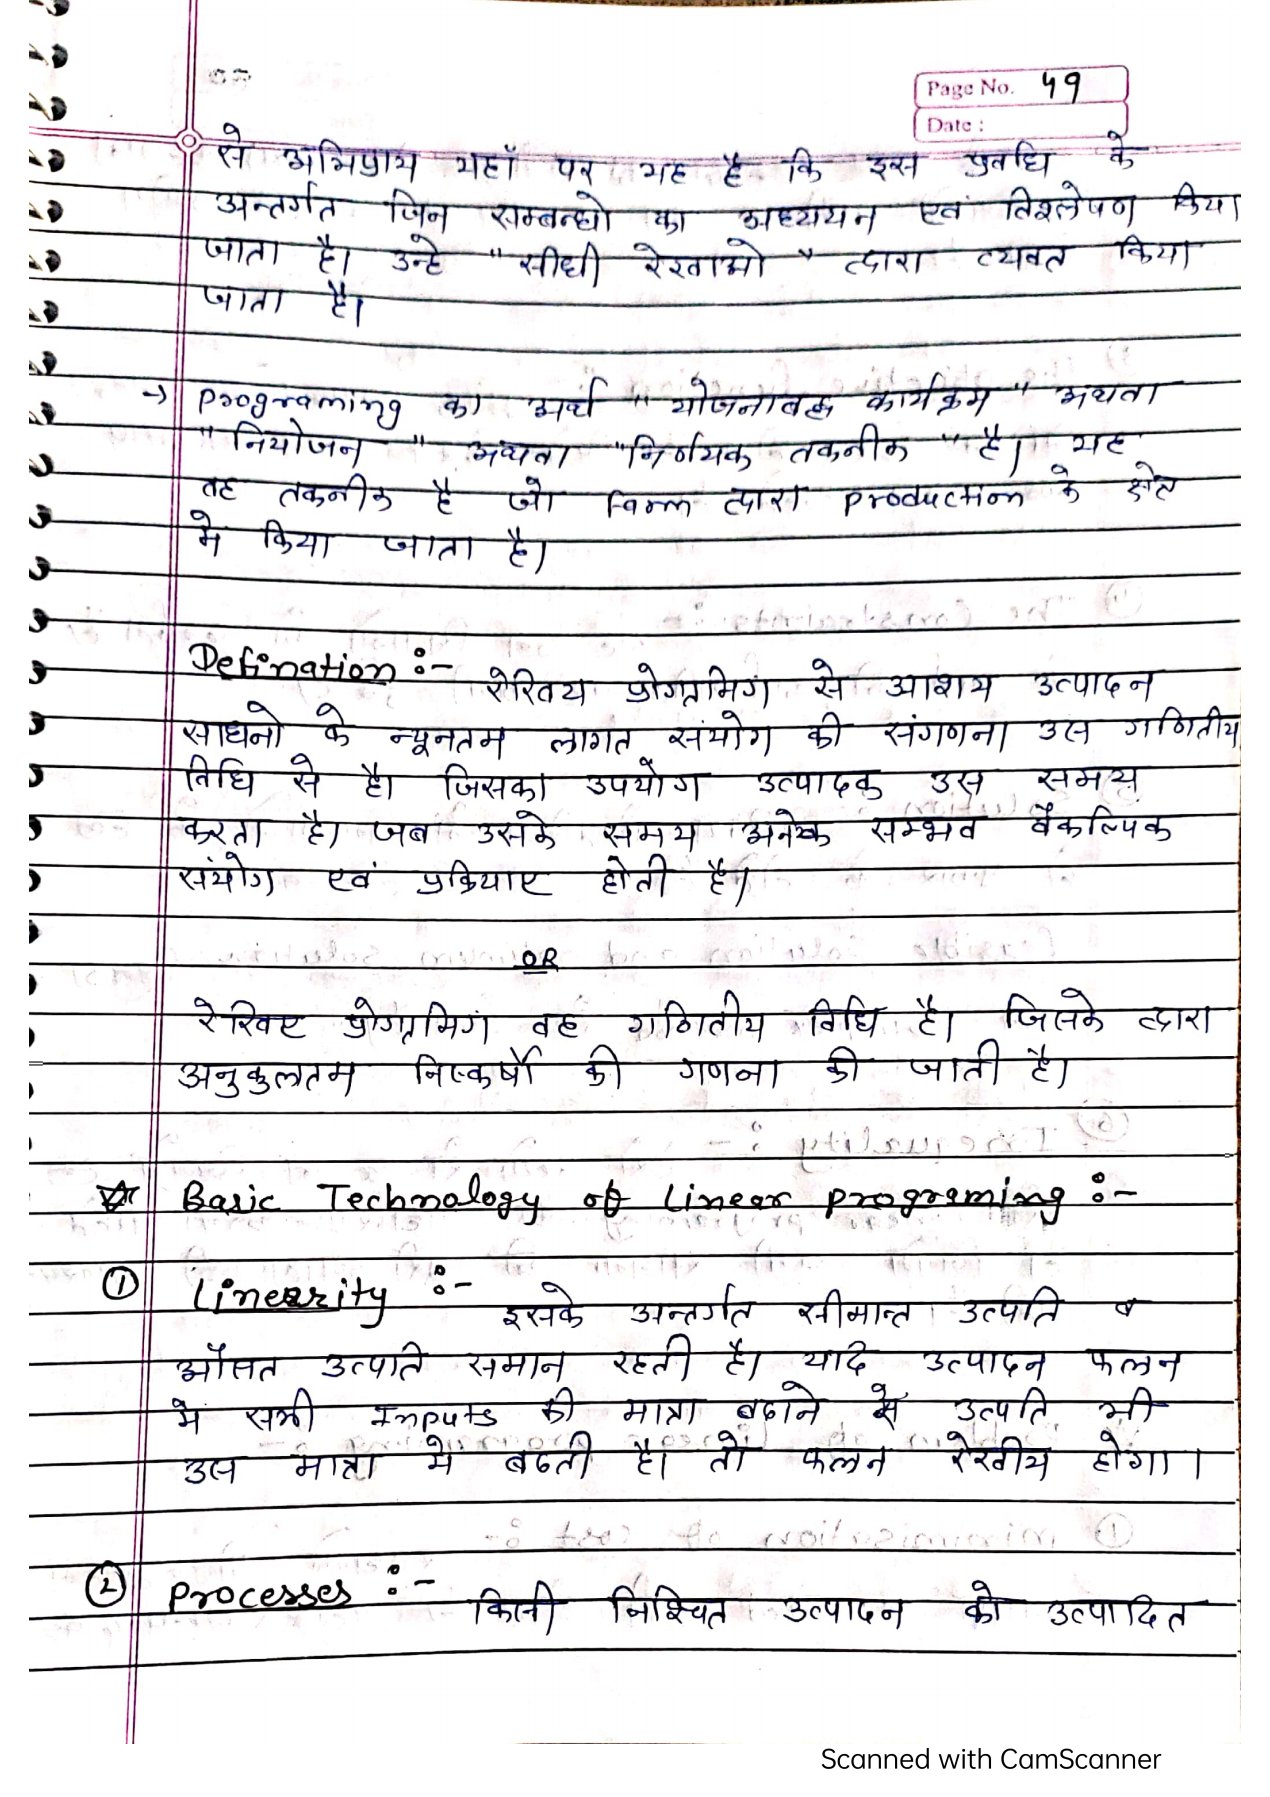 Page No. 49
Date :
से अभिप्राय यहाँ पर यह है कि इस प्रवधि के
अन्तर्गत जिन सम्बन्धो का अध्ययन एवं विश्लेषण किया
जाता है। उन्हे "सीधी रेखाओ" द्वारा व्यक्त किया
जाता है।
→ programing का अर्थ "योजनाबद्ध कार्यक्रम" अथवा
"नियोजन" अथवा "निर्णयक तकनीक" है। यह
वह तकनीक है जो firm द्वारा production के क्षेत्र
मे किया जाता है।
Defination :-
रेखिय प्रोग्रामिग से आशय उत्पादन
साधनो के न्यूनतम लागत संयोग की संगणना उस गणितीय
विधि से है। जिसका उपयोग उत्पादक उस समय
करता है। जब उसके समय अनेक सम्भव वैकल्पिक
संयोग एवं प्रक्रियाए होती है।
OR
रेखिए प्रोग्रामिग वह गणितीय विधि है। जिसके द्वारा
अनुकुलतम निष्कर्षो की गणना की जाती है।
☆ Basic Technology of Linear programing :-
① Linearity :- इसके अन्तर्गत सीमान्त उत्पति व
औसत उत्पति समान रहती है। यदि उत्पादन फलन
मे सभी Inputs की मात्रा बढाने से उत्पति भी
उस मात्रा मे बढती है। तो फलन रेखीय होगा।
② Processes :- किसी निश्चित उत्पादन को उत्पादित
Scanned with CamScanner